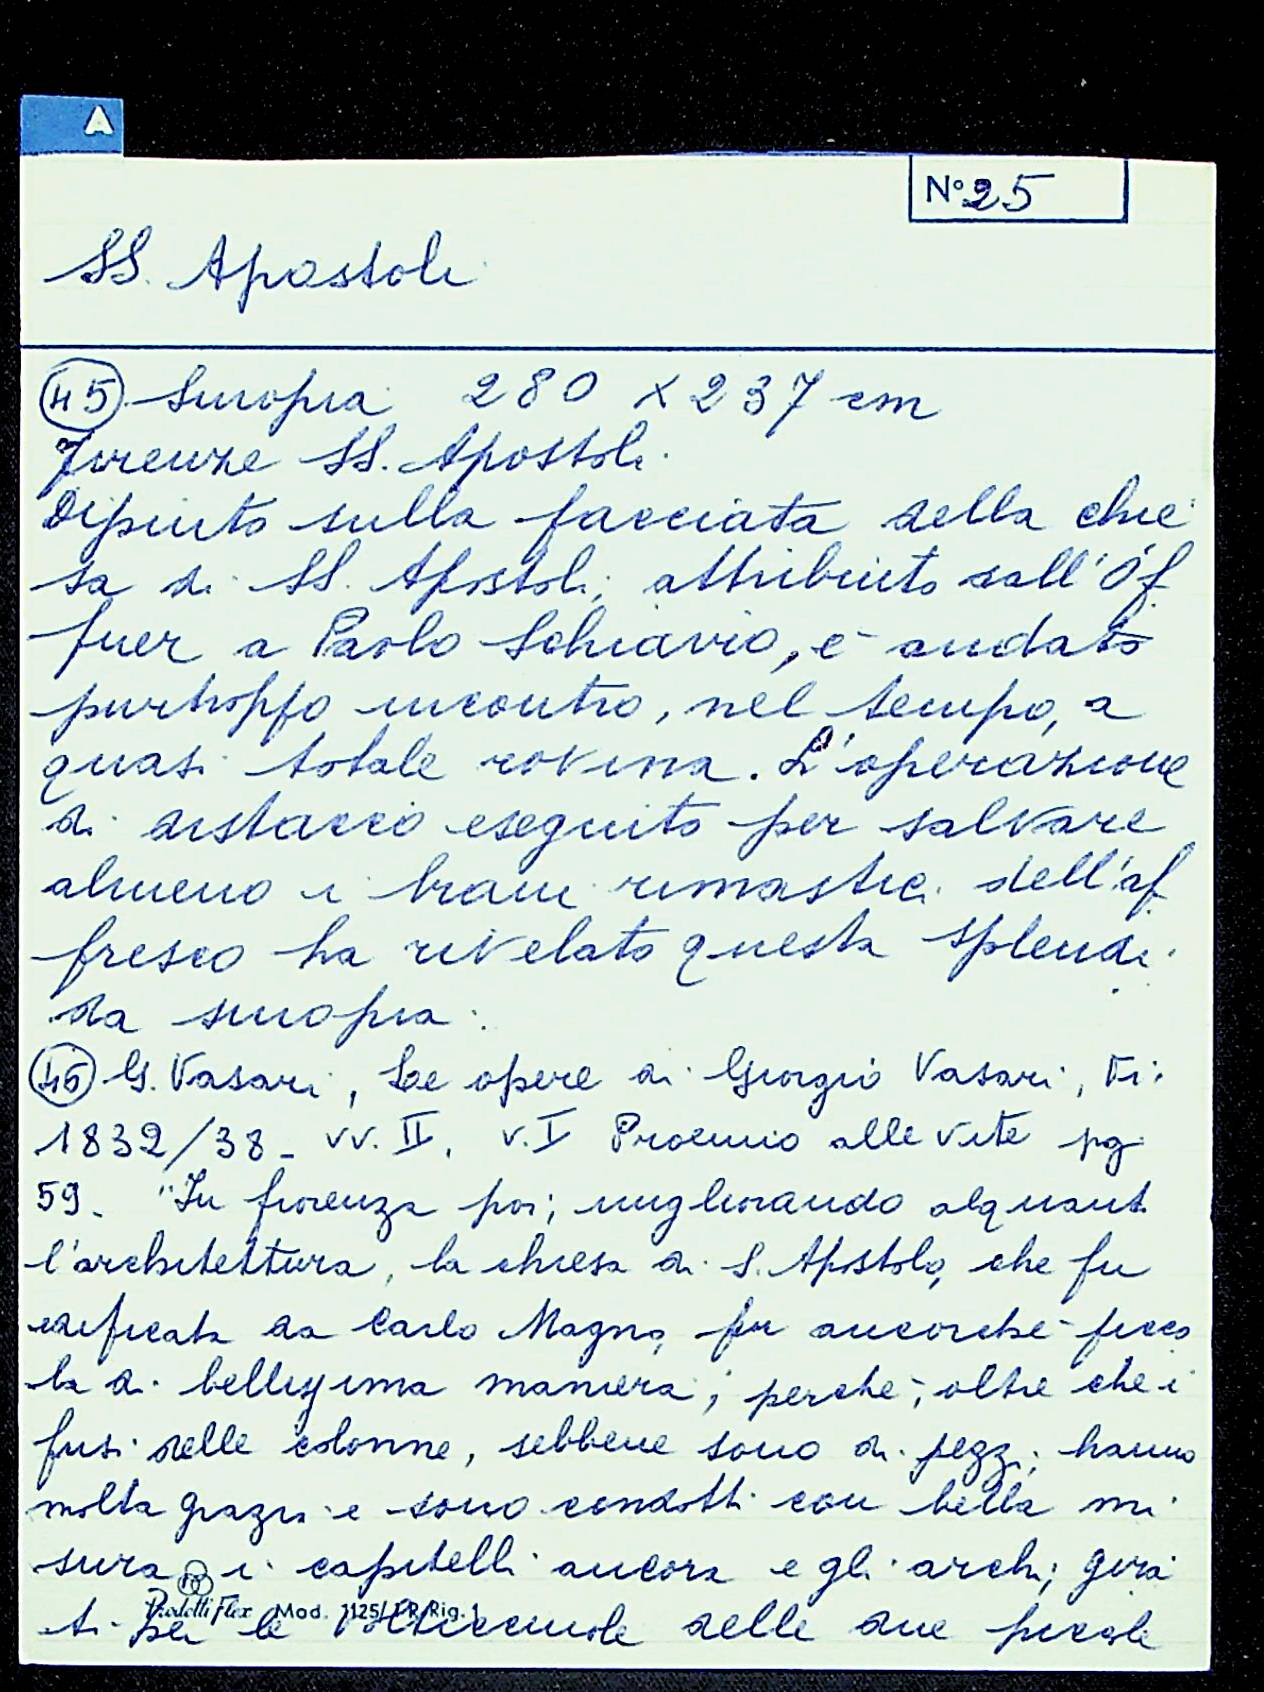 A
N° 25
SS. Apostoli
45 Sinopia 280 x 237 cm
Firenze SS. Apostoli.
Dipinto sulla facciata della chie
sa di SS. Apostoli, attribuito dall'Of
fner a Paolo Schiavo, è andato
purtroppo incontro, nel tempo, a
quasi totale rovina. L'operazione
di distacco eseguito per salvare
almeno i brani rimasti dell'af
fresco ha rivelato questa splendi
da sinopia.
46 G. Vasari, Le opere di Giorgio Vasari, Fi.
1832/38 - vv. II, v. I Proemio alle vite pg
59. "In fiorenza poi, migliorando alquant
l'architettura, la chiesa di S. Apostolo, che fu
edificata da Carlo Magno, fu ancorché picco
la di bellissima maniera; perché, oltre che i
fusi delle colonne, sebbene sono di pezzi, hanno
molta grazia e sono condotti con bella mi
sura, i capitelli ancora e gli archi, gira
ti per le volticciuole delle due piccole
Prodotti Flex Mod. 1125/FR/Rig. 1